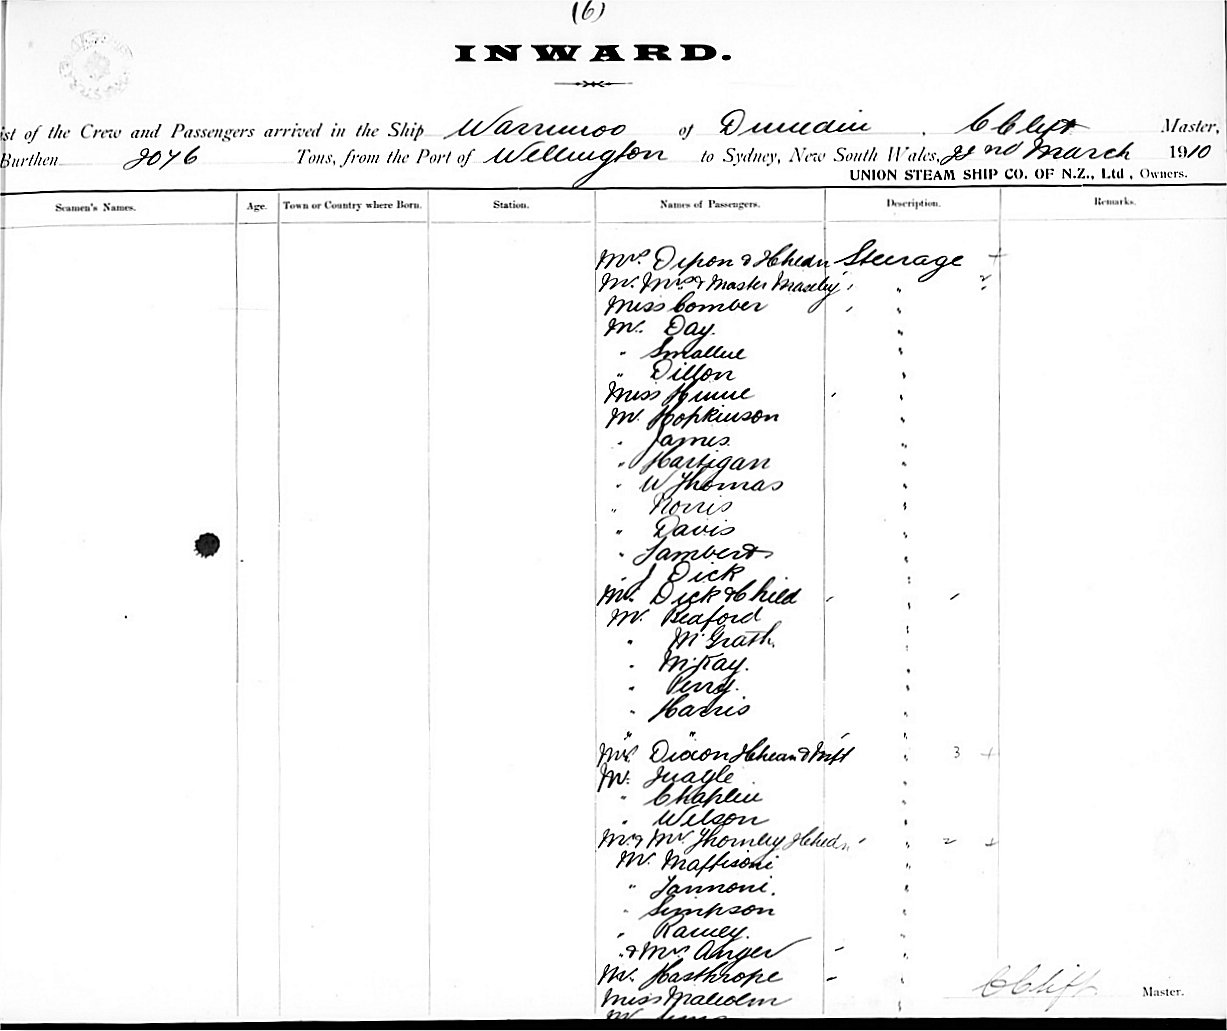 (6)
INWARD.
ist of the Crew and Passengers arrived in the Ship Warrimoo of Dunedin, C Clift Master,
Burthen 2076 Tons, from the Port of Wellington to Sydney, New South Wales, 22nd March 1910
UNION STEAM SHIP CO. OF N.Z., Ltd, Owners.
Seamen's Names. Age. Town or Country where Born. Station. Names of Passengers. Description. Remarks.
Mrs & Steerage +
Mr. Mrs & Master " 2
Miss Comber "
Mr. Day. "
" "
" Dillon "
Miss "
Mr Hopkinson "
" James "
" Hartigan "
" W Thomas "
" Norris "
" Davis "
" Lambert "
" J Dick "
Dick & Child "
Mr. Beaford "
" McGrath "
" McKay. "
" Perry. "
" Harris "
Dixon " 3 +
Mr. "
" Chaplin "
" Wilson "
Mr & Mrs Thornley " 2 +
Mr. "
" "
" Simpson "
" Ramey. "
" & Mrs Anger "
Mr. Hasthrope "
Miss Malcolm "
C Clift Master.
Mr